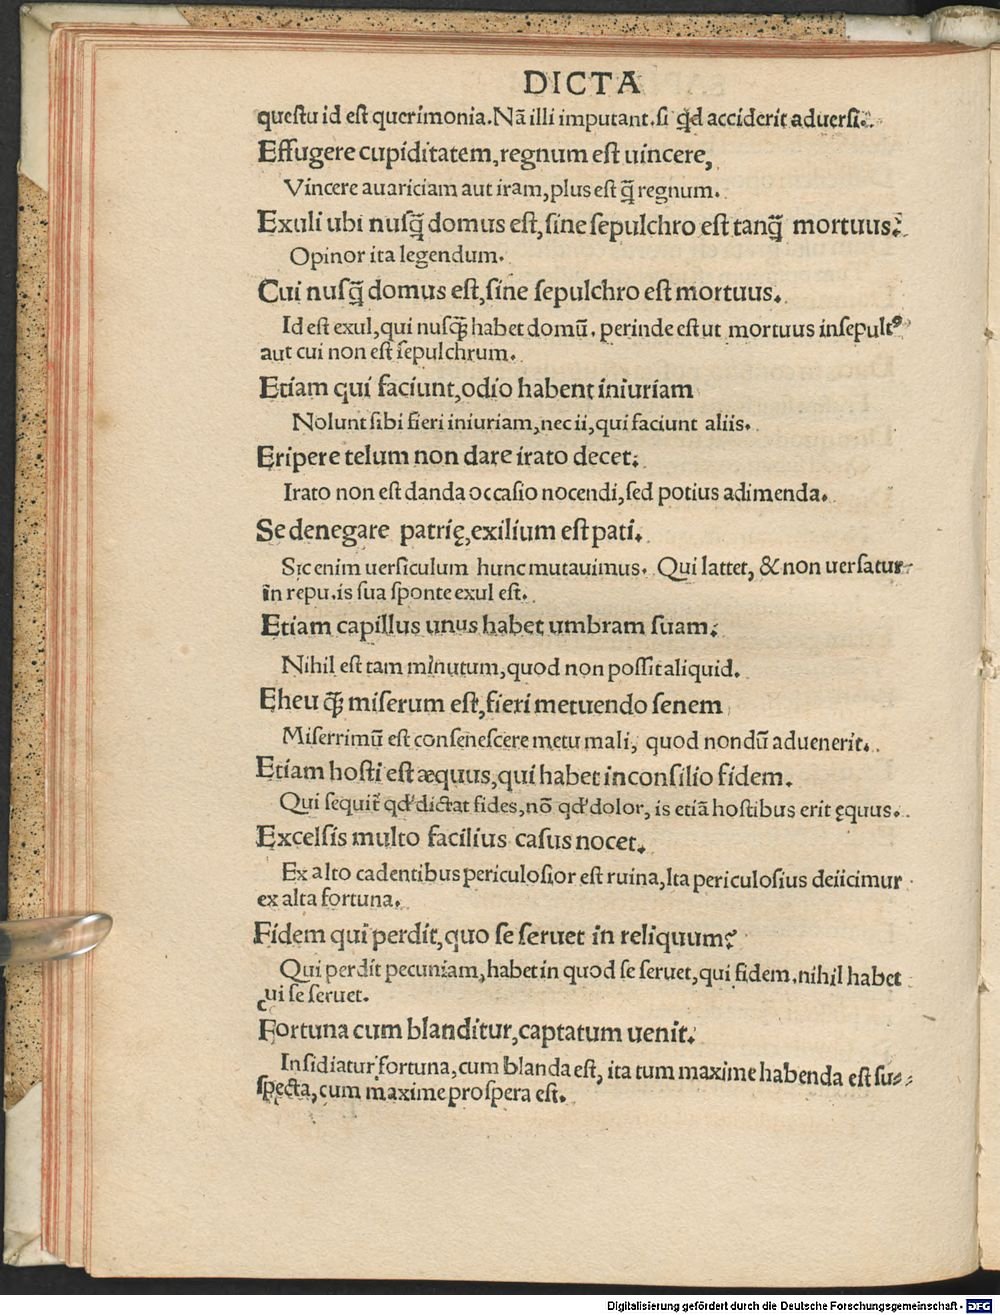 DICTA
questu id est querimonia. Nā illi imputant. si qd acciderit aduersi.
Effugere cupiditatem, regnum est uincere,
Vincere auariciam aut iram, plus est q̃ regnum.
Exuli ubi nusq̃ domus est, sine sepulchro est tanq̃ mortuus.
Opinor ita legendum.
Cui nusq̃ domus est, sine sepulchro est mortuus.
Id est exul, qui nusq̃ habet domū. perinde est ut mortuus insepultꝰ
aut cui non est sepulchrum.
Etiam qui faciunt, odio habent iniuriam
Nolunt sibi fieri iniuriam, nec ii, qui faciunt aliis.
Eripere telum non dare irato decet.
Irato non est danda occasio nocendi, sed potius adimenda.
Se denegare patrię, exilium est pati.
Sic enim uersiculum hunc mutauimus. Qui lattet, & non uersatur
in repu. is sua sponte exul est.
Etiam capillus unus habet umbram suam.
Nihil est tam minutum, quod non possit aliquid.
Eheu q̃ miserum est, fieri metuendo senem
Miserrimū est consenescere metu mali, quod nondū aduenerit.
Etiam hosti est æquus, qui habet in consilio fidem.
Qui sequit̃ qd' dictat fides, nō qd' dolor, is etiā hostibus erit ęquus.
Excelsis multo facilius casus nocet.
Ex alto cadentibus periculosior est ruina, Ita periculosius deiicimur
ex alta fortuna.
Fidem qui perdit, quo se seruet in reliquum?
Qui perdit pecuniam, habet in quod se seruet, qui fidem. nihil habet
cui se seruet.
Fortuna cum blanditur, captatum uenit.
Insidiatur fortuna, cum blanda est, ita tum maxime habenda est su-
specta, cum maxime prospera est.
Digitalisierung gefördert durch die Deutsche Forschungsgemeinschaft - DFG